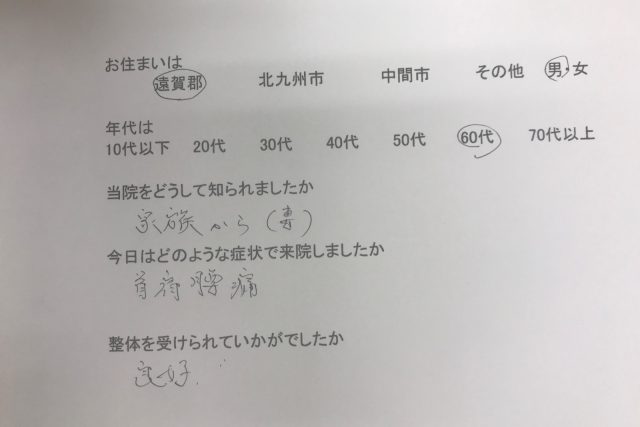 お住まいは
遠賀郡 北九州市 中間市 その他 男・女
年代は
10代以下 20代 30代 40代 50代 60代 70代以上
当院をどうして知られましたか
家族から(妻)
今日はどのような症状で来院しましたか
首肩腰痛
整体を受けられていかがでしたか
良好.